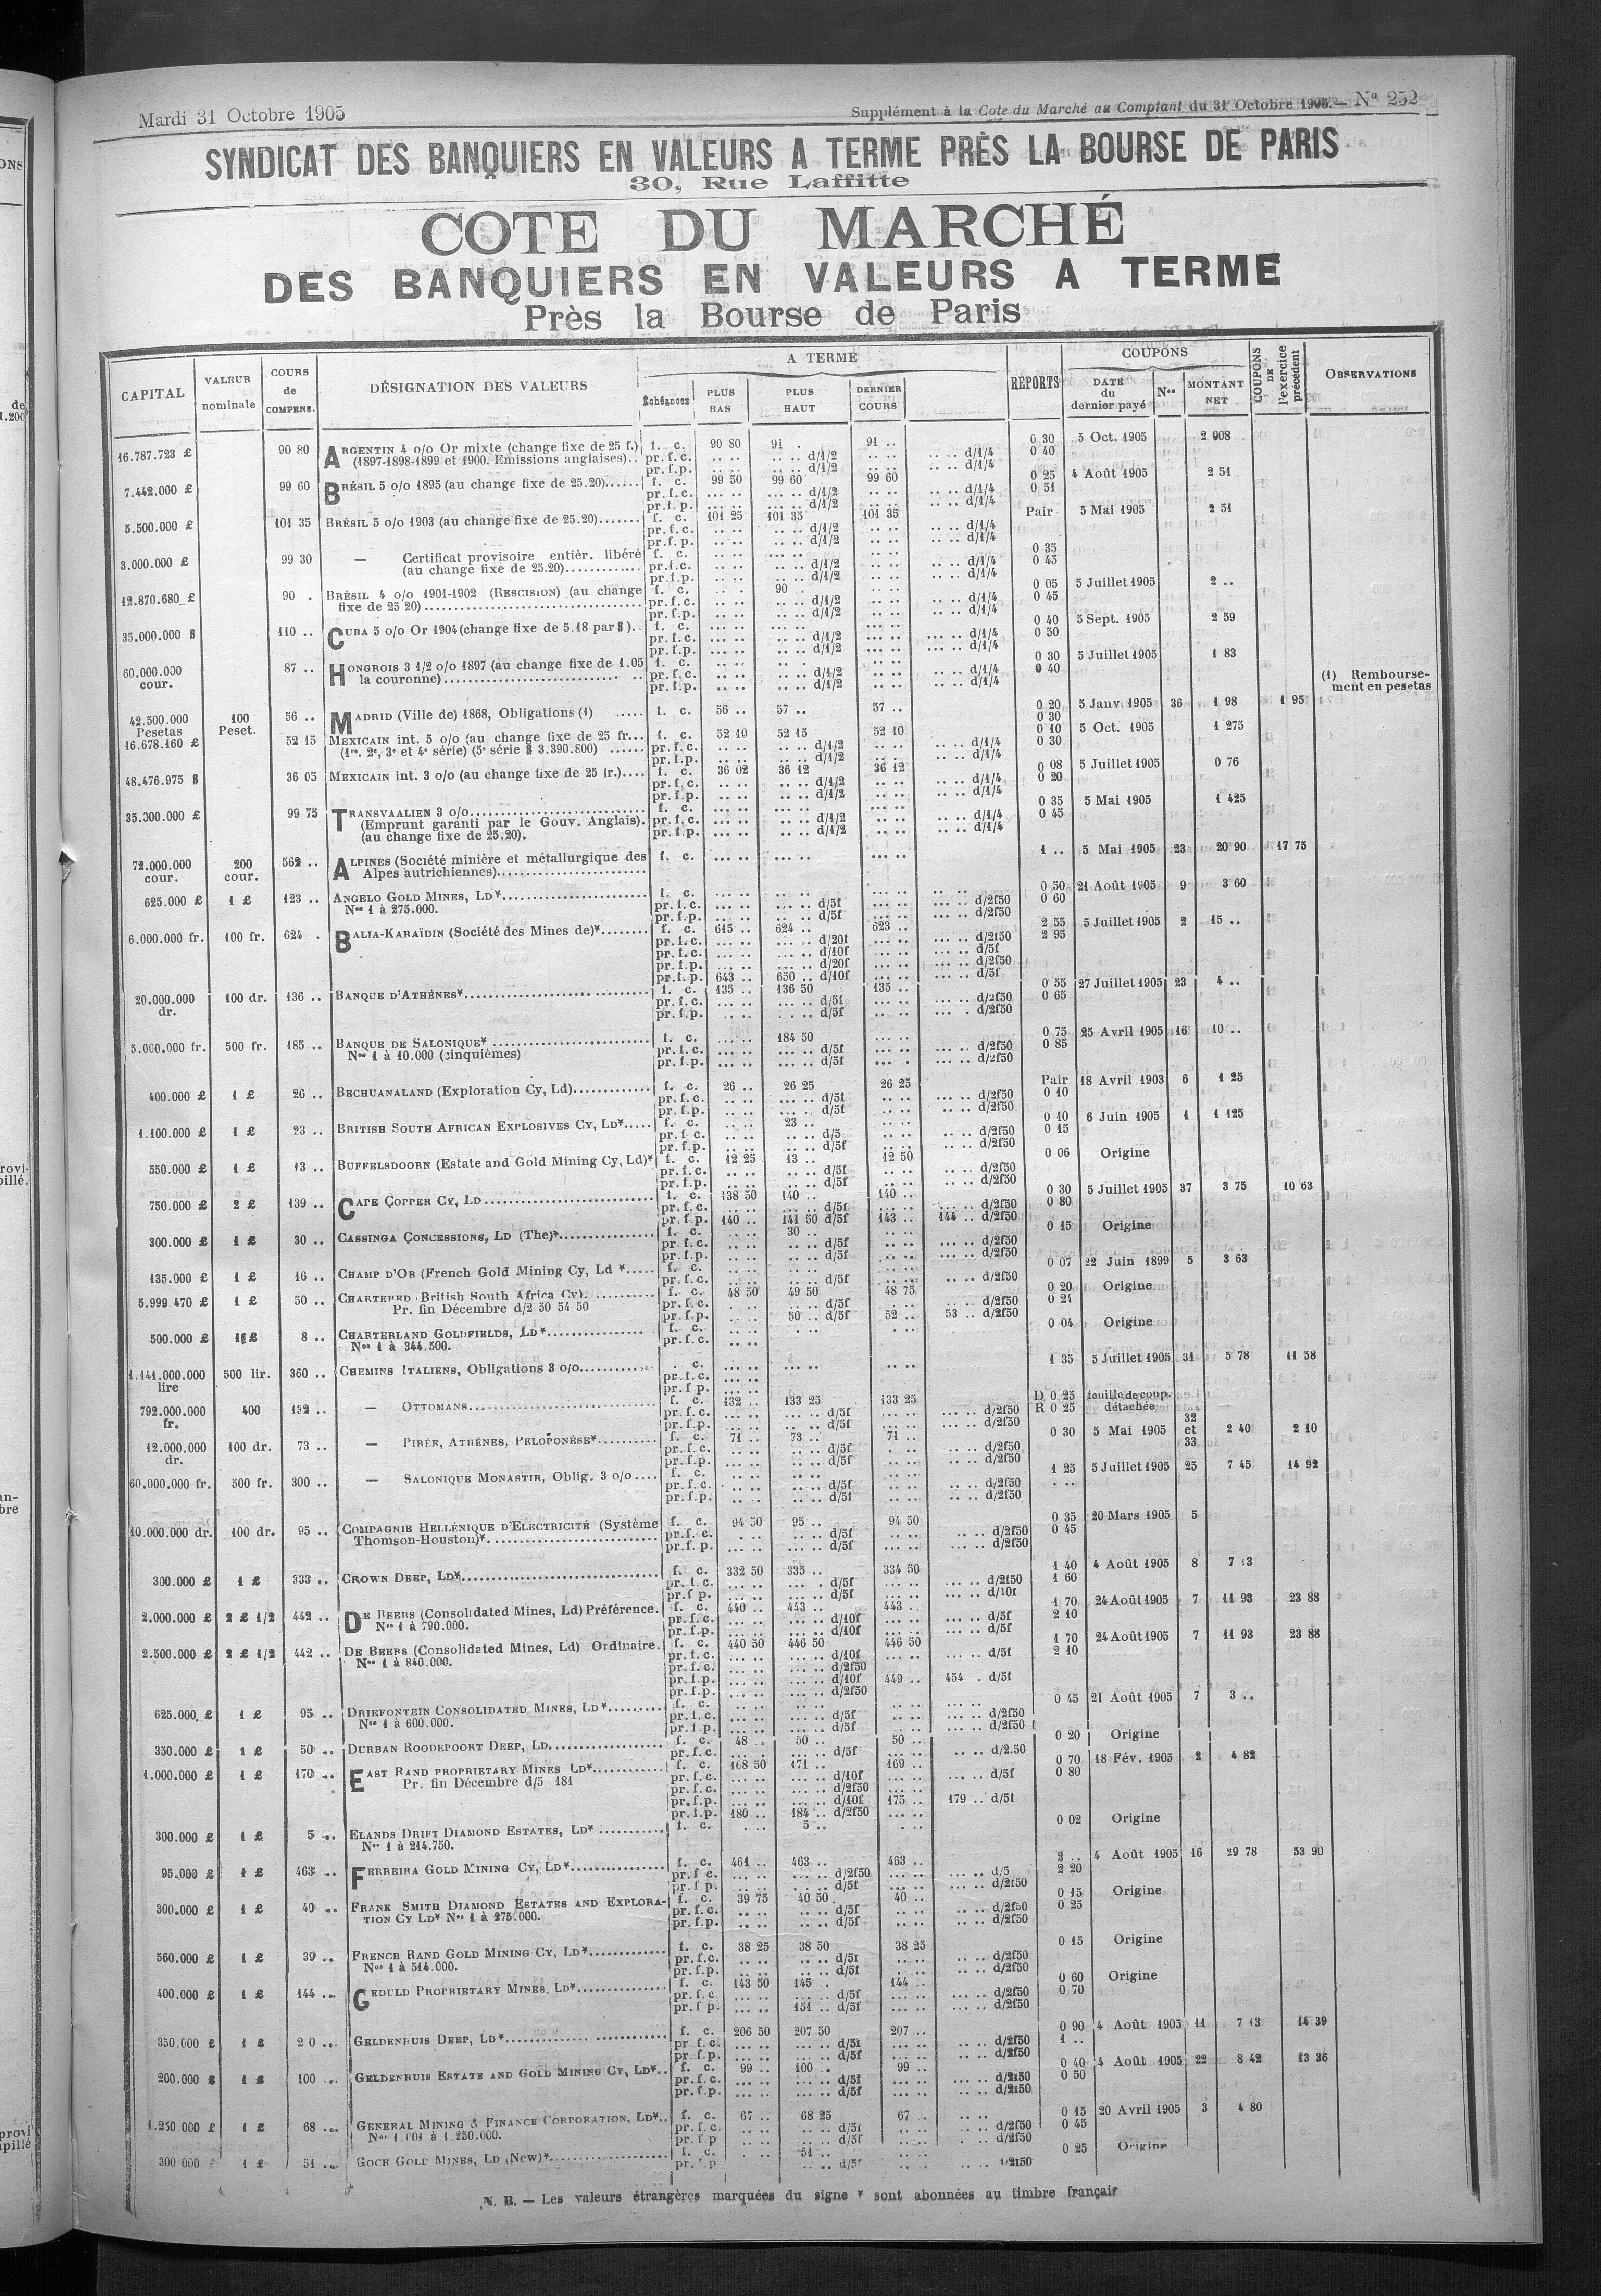 Mardi 31 Octobre 1905
Supplément à la Cote du Marché au Comptant du 31 Octobre 1905. — No 252
SYNDICAT DES BANQUIERS EN VALEURS A TERME PRÈS LA BOURSE DE PARIS
30, Rue Laffitte
COTE DU MARCHÉ
DES BANQUIERS EN VALEURS A TERME
Près la Bourse de Paris
CAPITAL VALEUR nominale COURS de COMPENS. DÉSIGNATION DES VALEURS A TERME Échéances PLUS BAS PLUS HAUT DERNIER COURS REPORTS COUPONS DATE du dernier payé Nos MONTANT NET COUPONS DE l'exercice précédent OBSERVATIONS
16.787.723 £ 90 80 ARGENTIN 4 o/o Or mixte (change fixe de 25 f.) f. c. 90 80 91 . 91 .. 0 30 5 Oct. 1905 2 008
(1897-1898-1899 et 1900. Emissions anglaises).. pr.f.c. d/1/2 d/1/4 0 40
pr.f.p. d/1/2 d/1/4
7.442.000 £ 99 60 BRÉSIL 5 o/o 1895 (au change fixe de 25.20)...... f. c. 99 50 99 60 99 60 0 25 4 Août 1905 2 51
pr.f.c. d/1/2 d/1/4 0 51
pr.f.p. d/1/2 d/1/4
5.500.000 £ 101 35 BRÉSIL 5 o/o 1903 (au change fixe de 25.20)....... f. c. 101 25 101 35 101 35 Pair 5 Mai 1905 2 51
pr.f.c. d/1/2 d/1/4
pr.f.p. d/1/2 d/1/4
3.000.000 £ 99 30 — Certificat provisoire entièr. libéré f. c. 0 35
(au change fixe de 25.20)............. pr.f.c. d/1/2 d/1/4 0 45
pr.f.p. d/1/2 d/1/4
12.870.680 £ 90 . BRÉSIL 4 o/o 1901-1902 (RESCISION) (au change f. c. 90 . 0 05 5 Juillet 1905 2 ..
fixe de 25 20)..... pr.f.c. d/1/2 d/1/4 0 45
pr.f.p. d/1/2 d/1/4
35.000.000 $ 110 .. CUBA 5 o/o Or 1904 (change fixe de 5.18 par $).. f. c. 0 40 5 Sept. 1905 2 59
pr.f.c. d/1/2 d/1/4 0 50
pr.f.p. d/1/2 d/1/4
60.000.000 cour. 87 .. HONGROIS 3 1/2 o/o 1897 (au change fixe de 1.05 f. c. 0 30 5 Juillet 1905 1 83
la couronne)..... pr.f.c. d/1/2 d/1/4 0 40
pr.f.p. d/1/2 d/1/4
(1) Remboursement en pesetas
42.500.000 Pesetas 100 Peset. 56 .. MADRID (Ville de) 1868, Obligations (1) ..... f. c. 56 .. 57 .. 57 .. 0 20 5 Janv. 1905 36 1 98 1 95
0 30
16.678.160 £ 52 15 MEXICAIN int. 5 o/o (au change fixe de 25 fr... f. c. 52 10 52 15 52 10 0 10 5 Oct. 1905 1 275
(1re, 2e, 3e et 4e série) (5e série $ 3.390.800) ...... pr.f.c. d/1/2 d/1/4 0 30
pr.f.p. d/1/2 d/1/4
48.476.975 $ 36 05 MEXICAIN int. 3 o/o (au change fixe de 25 fr.).... f. c. 36 02 36 12 36 12 0 08 5 Juillet 1905 0 76
pr.f.c. d/1/2 d/1/4 0 20
pr.f.p. d/1/2 d/1/4
35.000.000 £ 99 75 TRANSVAALIEN 3 o/o..... f. c. 0 35 5 Mai 1905 1 425
(Emprunt garanti par le Gouv. Anglais). pr.f.c. d/1/2 d/1/4 0 45
(au change fixe de 25.20). pr.f.p. d/1/2 d/1/4
72.000.000 cour. 200 cour. 562 .. ALPINES (Société minière et métallurgique des f. c. 1 .. 5 Mai 1905 23 20 90 17 75
Alpes autrichiennes).....
625.000 £ 1 £ 123 .. ANGELO GOLD MINES, LD*..... f. c. 0 50 21 Août 1905 9 3 60
Nos 1 à 275.000. pr.f.c. d/5f d/2f50 0 60
pr.f.p. d/5f d/2f50
6.000.000 fr. 100 fr. 624 . BALIA-KARAÏDIN (Société des Mines de)*........ f. c. 615 .. 624 .. 623 .. 2 55 5 Juillet 1905 2 15 ..
pr.f.c. d/20f d/2f50 2 95
pr.f.c. d/10f d/5f
pr.f.p. d/20f d/2f50
pr.f.p. 643 .. 650 .. d/10f d/5f
20.000.000 dr. 100 dr. 136 .. BANQUE D'ATHÈNES*..... f. c. 135 .. 136 50 135 .. 0 55 27 Juillet 1905 23 4 ..
pr.f.c. d/5f d/2f50 0 65
pr.f.p. d/5f d/2f50
5.000.000 fr. 500 fr. 185 .. BANQUE DE SALONIQUE* ..... f. c. 184 50 0 75 25 Avril 1905 16 10 ..
Nos 1 à 10.000 (cinquièmes) pr.f.c. d/5f d/2f50 0 85
pr.f.p. d/5f d/2f50
400.000 £ 1 £ 26 .. BECHUANALAND (Exploration Cy, Ld)............. f. c. 26 .. 26 25 26 25 Pair 18 Avril 1903 6 1 25
pr.f.c. d/5f d/2f50 0 10
pr.f.p. d/5f d/2f50
1.100.000 £ 1 £ 23 .. BRITISH SOUTH AFRICAN EXPLOSIVES CY, LD*..... f. c. 23 .. 0 10 6 Juin 1905 1 1 125
pr.f.c. d/5 d/2f50 0 15
pr.f.p. d/5f d/2f50
550.000 £ 1 £ 13 .. BUFFELSDOORN (Estate and Gold Mining Cy, Ld)* f. c. 12 25 13 .. 12 50 0 06 Origine
pr.f.c. d/5f d/2f50
pr.f.p. d/5f d/2f50
750.000 £ 2 £ 139 .. CAPE COPPER CY, LD..... f. c. 138 50 140 .. 140 .. 0 30 5 Juillet 1905 37 3 75 10 63
pr.f.c. d/5f d/2f50 0 80
pr.f.p. 140 .. 141 50 d/5f 143 .. 144 .. d/2f50
300.000 £ 1 £ 30 .. CASSINGA CONCESSIONS, LD (The)*..... f. c. 30 .. 0 15 Origine
pr.f.c. d/5f d/2f50
pr.f.p. d/5f d/2f50
135.000 £ 1 £ 16 .. CHAMP D'OR (French Gold Mining Cy, Ld *..... f. c. 0 07 22 Juin 1899 5 3 63
pr.f.c. d/5f d/2f50
5.999 470 £ 1 £ 50 .. CHARTERED (British South Africa Cy)..... f. c. 48 50 49 50 48 75 0 20 Origine
Pr. fin Décembre d/2 50 54 50 pr.f.c. d/5f d/2f50 0 24
pr.f.p. 50 .. d/5f 52 .. 53 .. d/2f50
500.000 £ 1 £ 8 .. CHARTERLAND GOLDFIELDS, LD*..... f. c. 0 04 Origine
Nos 1 à 344.500. pr.f.c.
1.141.000.000 lire 500 lir. 360 .. CHEMINS ITALIENS, Obligations 3 o/o..... . c. 1 35 5 Juillet 1905 31 5 78 11 58
pr.f.c.
pr.f.p.
792.000.000 fr. 400 132 .. — OTTOMANS..... f. c. 132 .. 133 25 133 25 D 0 25 feuille de coup. détachée
pr.f.c. d/5f d/2f50 R 0 25
pr.f.p. d/5f d/2f50
12.000.000 dr. 100 dr. 73 .. — PIRÉE, ATHÈNES, PÉLOPONÈSE*.......... f. c. 71 .. 73 .. 71 .. 0 30 5 Mai 1905 32 et 33 2 40 2 10
pr.f.c. d/5f d/2f50
pr.f.p. d/5f d/2f50
60.000.000 fr. 500 fr. 300 .. — SALONIQUE MONASTIR, Oblig. 3 o/o.... f. c. 1 25 5 Juillet 1905 25 7 45 14 92
pr.f.c. d/5f d/2f50
pr.f.p. d/5f d/2f50
10.000.000 dr. 100 dr. 95 .. COMPAGNIE HELLÉNIQUE D'ELECTRICITÉ (Système f. c. 94 50 95 .. 94 50 0 35 20 Mars 1905 5
Thomson-Houston)*..... pr.f.c. d/5f d/2f50 0 45
pr.f.p. d/5f d/2f50
300.000 £ 1 £ 333 .. CROWN DEEP, LD*..... f. c. 332 50 335 .. 334 50 1 40 4 Août 1905 8 7 13
pr.f.c. d/5f d/2f50 1 60
pr.f.p. d/5f d/10f
2.000.000 £ 2 £ 1/2 442 .. DE BEERS (Consolidated Mines, Ld) Préférence. f. c. 440 .. 443 .. 443 .. 1 70 24 Août 1905 7 11 93 23 88
Nos 1 à 790.000. pr.f.c. d/10f d/5f 2 10
pr.f.p. d/10f d/5f
2.500.000 £ 2 £ 1/2 442 .. DE BEERS (Consolidated Mines, Ld) Ordinaire. f. c. 440 50 446 50 446 50 1 70 24 Août 1905 7 11 93 23 88
Nos 1 à 840.000. pr.f.c. d/10f d/5f 2 10
pr.f.c. d/2f50
pr.f.p. d/10f 449 .. 454 . d/5f
pr.f.p. d/2f50
625.000 £ 1 £ 95 .. DRIEFONTEIN CONSOLIDATED MINES, LD*......... f. c. 0 45 21 Août 1905 7 3 ..
Nos 1 à 600.000. pr.f.c. d/5f d/2f50
pr.f.p. d/5f d/2f50
350.000 £ 1 £ 50 .. DURBAN ROODEPOORT DEEP, LD..... f. c. 48 .. 50 .. 50 .. 0 20 Origine
pr.f.c. d/5f d/2.50
1.000.000 £ 1 £ 170 .. EAST RAND PROPRIETARY MINES LD*..... f. c. 168 50 171 .. 169 .. 0 70 18 Fév. 1905 2 4 82
Pr. fin Décembre d/5 181 pr.f.c. d/10f d/5f 0 80
pr.f.c. d/2f50
pr.f.p. d/10f 175 .. 179 .. d/5f
pr.f.p. 180 .. 184 .. d/2f50
300.000 £ 1 £ 5 .. ELANDS DRIFT DIAMOND ESTATES, LD* ..... f. c. 5 .. 0 02 Origine
Nos 1 à 214.750.
95.000 £ 1 £ 463 .. FERREIRA GOLD MINING CY, LD*..... f. c. 461 .. 463 .. 463 .. 2 .. 4 Août 1905 16 29 78 53 90
pr.f.c. d/2f50 d/5 2 20
pr.f.p. d/5f d/2f50
300.000 £ 1 £ 40 .. FRANK SMITH DIAMOND ESTATES AND EXPLORA- f. c. 39 75 40 50 40 .. 0 15 Origine
TION CY LD* Nos 1 à 275.000. pr.f.c. d/5f d/2f50 0 25
pr.f.p. d/5f d/2f50
560.000 £ 1 £ 39 .. FRENCH RAND GOLD MINING CY, LD*..... f. c. 38 25 38 50 38 25 0 15 Origine
Nos 1 à 514.000. pr.f.c. d/5f d/2f50
pr.f.p. d/5f d/2f50
400.000 £ 1 £ 144 .. GEDULD PROPRIETARY MINES, LD*..... f. c. 143 50 145 . 144 .. 0 60 Origine
pr.f.c. d/5f d/2f50 0 70
pr.f.p. 151 .. d/5f d/2f50
350.000 £ 1 £ 2 0 .. GELDENHUIS DEEP, LD*..... f. c. 206 50 207 50 207 .. 0 90 4 Août 1905 11 7 13 14 39
pr.f.c. d/5f d/2f50 1 ..
pr.f.p. d/5f d/2f50
200.000 £ 1 £ 100 .. GELDENHUIS ESTATE AND GOLD MINING CY, LD*.. f. c. 99 .. 100 .. 99 .. 0 40 4 Août 1905 22 8 42 13 36
pr.f.c. d/5f d/2f50 0 50
pr.f.p. d/5f d/2f50
1.250.000 £ 1 £ 68 .. GENERAL MINING & FINANCE CORPORATION, LD*.. f. c. 67 .. 68 25 67 . 0 15 20 Avril 1905 3 4 80
Nos 1.001 à 1.250.000. pr.f.c. d/5f d/2f50 0 45
pr.f.p d/5f d/2f50
300 000 £ 1 £ 51 .. GOCH GOLD MINES, LD (New)*..... f. c. 51 .. 0 25 Origine
pr.f.p d/5f 2f50
N. B. — Les valeurs étrangères marquées du signe * sont abonnées au timbre français